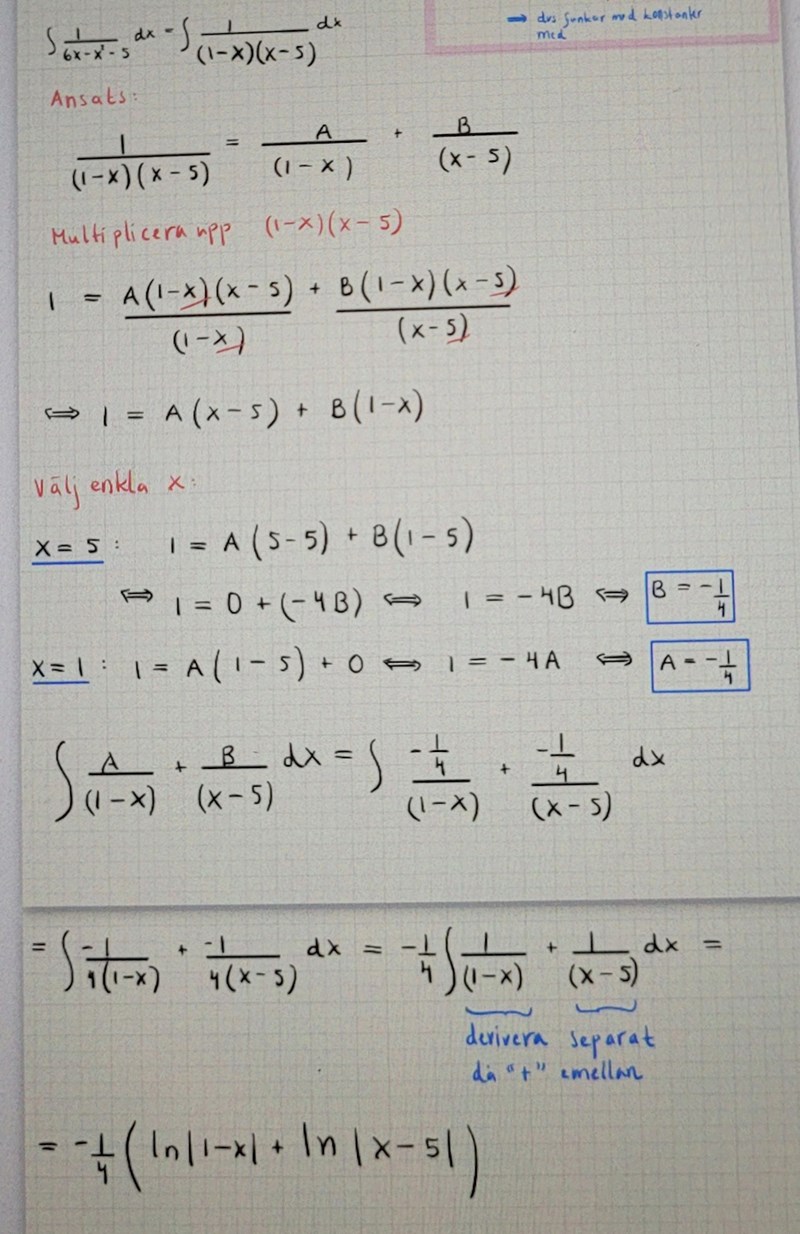 ⇒ dvs funkar med konstanter
med
∫ 1/(6x-x²-5) dx = ∫ 1/((1-x)(x-5)) dx
Ansats:
1/((1-x)(x-5)) = A/(1-x) + B/(x-5)
Multiplicera upp (1-x)(x-5)
1 = A(1-x)(x-5)/(1-x) + B(1-x)(x-5)/(x-5)
⇔ 1 = A(x-5) + B(1-x)
Välj enkla x:
x = 5 : 1 = A(5-5) + B(1-5)
⇔ 1 = 0 + (-4B) ⇔ 1 = -4B ⇔ B = -1/4
x = 1 : 1 = A(1-5) + 0 ⇔ 1 = -4A ⇔ A = -1/4
∫ A/(1-x) + B/(x-5) dx = ∫ (-1/4)/(1-x) + (-1/4)/(x-5) dx
= ∫ -1/(4(1-x)) + -1/(4(x-5)) dx = -1/4 ∫ 1/(1-x) + 1/(x-5) dx =
derivera separat
då "+" emellan
= -1/4 (ln|1-x| + ln|x-5|)